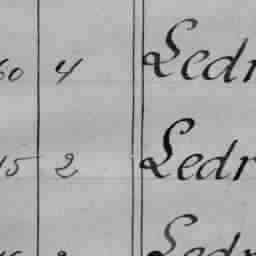 60 4 Ledr
15 2 Ledr